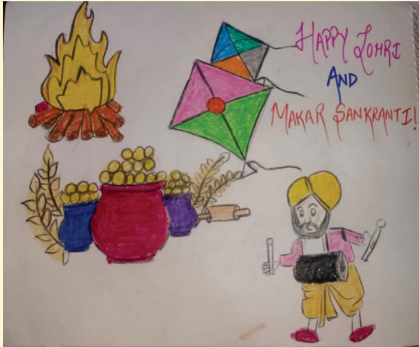 HAPPY LOHRI
AND
MAKAR SANKRANTI!